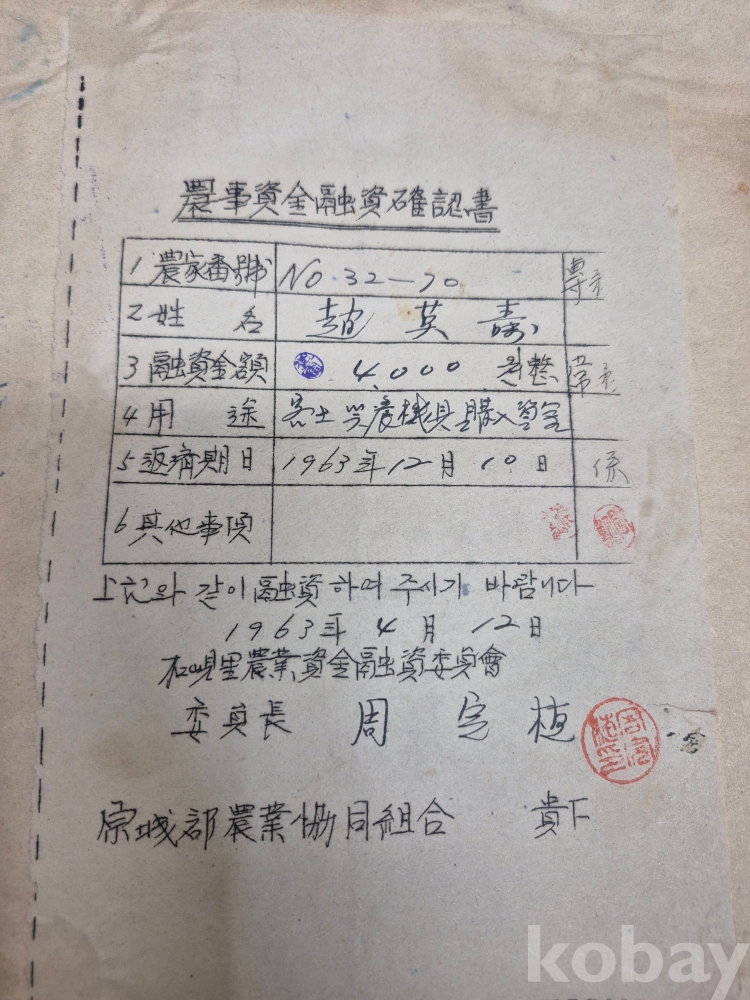 農事資金融資確認書
1 農家番號 NO 32—70
2 姓 名 趙 英 壽
3 融資金額 4,000 원整
4 用 途 客土 및 農機具 購入資金
5 返濟期日 1963年 12月 10日 係
6 其他事項
上記와 같이 融資하여 주시기 바랍니다
1963年 4月 12日
石峴里農業資金融資委員會
委員長 周 宗 植
農業協同組合 貴下
kobay